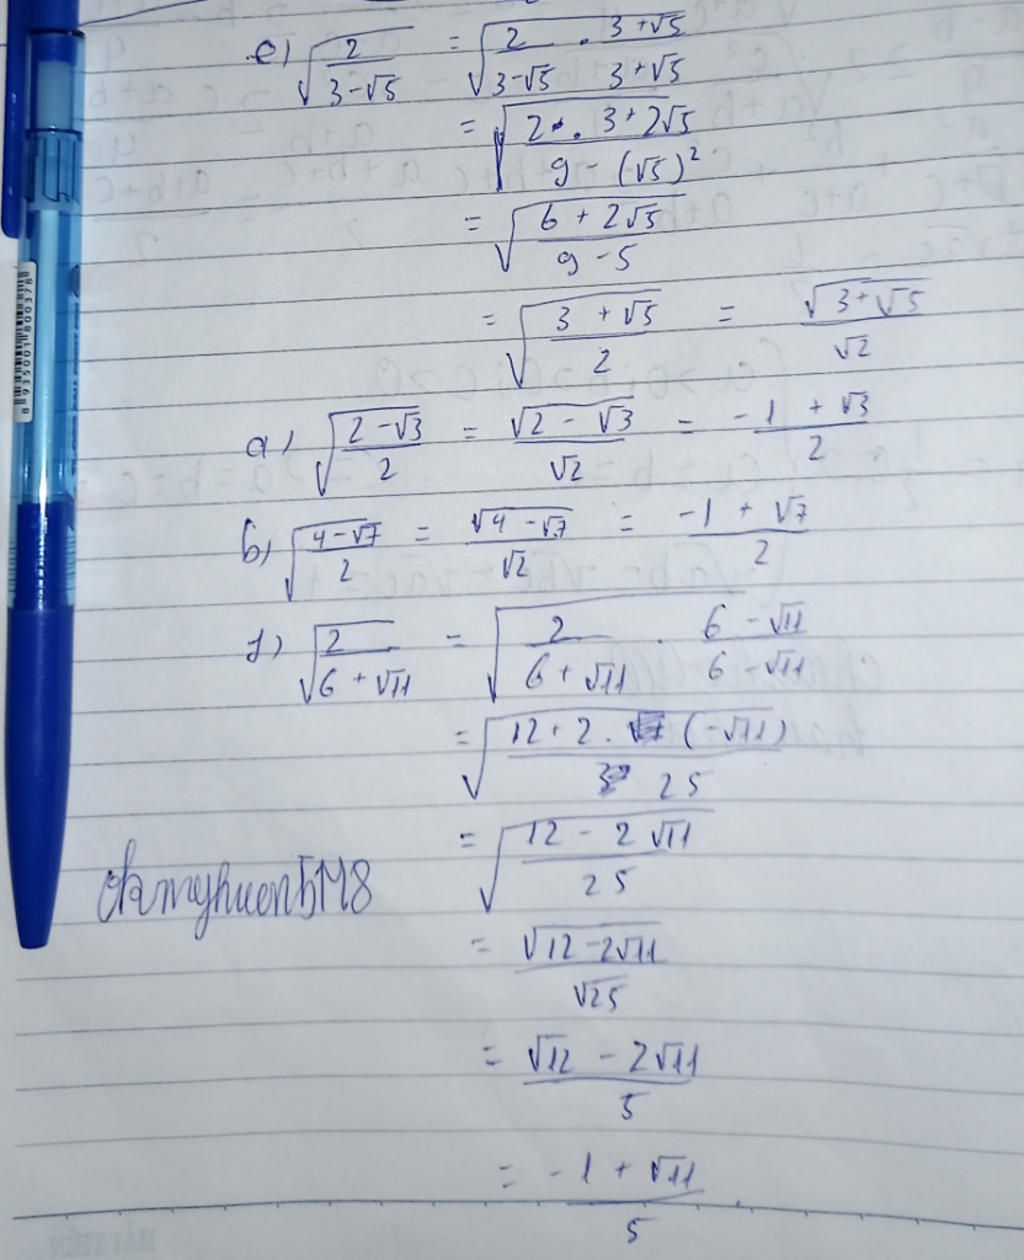 e) √(2/(3-√5)) = √(2/(3-√5) . (3+√5)/(3+√5))
= √((2 . 3+2√5)/(9-(√5)²))
= √((6+2√5)/(9-5))
= √((3+√5)/2) = √(3+√5)/√2
a) √((2-√3)/2) = (√2-√3)/√2 = (-1+√3)/2
b) √((4-√7)/2) = √(4-√7)/√2 = (-1+√7)/2
f) √(2/(6+√11)) = √(2/(6+√11) . (6-√11)/(6-√11))
= √((12+2.(-√11))/25)
= √((12-2√11)/25)
= √(12-2√11)/√25
= (√12-2√11)/5
= (-1+√11)/5
8935001800378